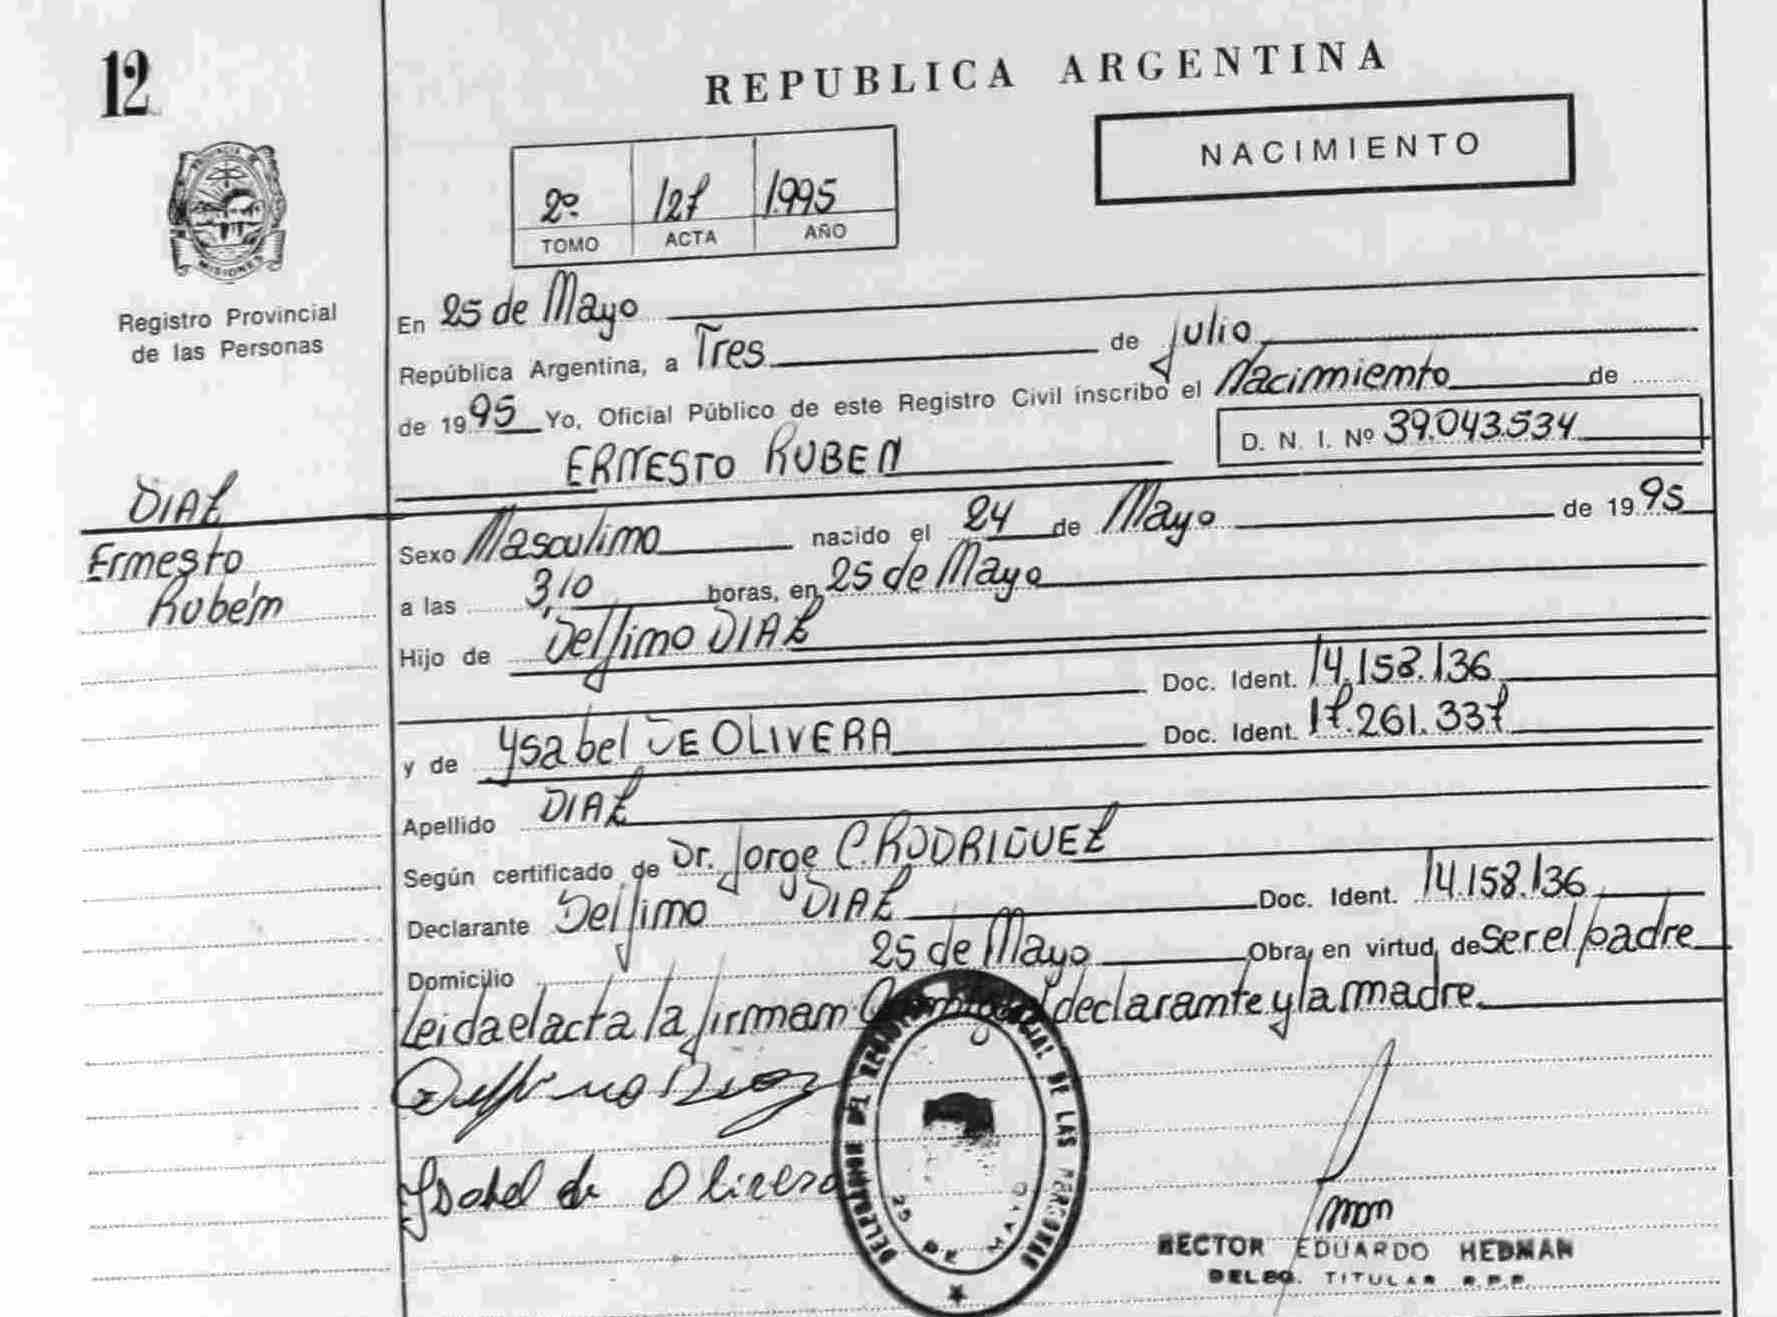 12
REPUBLICA ARGENTINA
NACIMIENTO
2º 127 1995
TOMO ACTA AÑO
PROVINCIA DE
MISIONES
Registro Provincial
de las Personas
En 25 de Mayo
República Argentina, a Tres de Julio
de 1995 Yo, Oficial Público de este Registro Civil inscribo el Nacimiento de
ERNESTO RUBEN D. N. I. Nº 39.043.534
DIAZ
Ernesto
Rubén
Sexo Masculino nacido el 24 de Mayo de 1995
a las 3,10 horas, en 25 de Mayo
Hijo de Delfino DIAZ
Doc. Ident. 14.158.136
y de Ysabel DE OLIVERA Doc. Ident. 17.261.337
Apellido DIAZ
Según certificado de Dr. Jorge C. RODRIGUEZ
Declarante Delfino DIAZ Doc. Ident. 14.158.136
Domicilio 25 de Mayo Obra en virtud de ser el padre
Leida el acta la firman declarante y la madre
Delfino Diaz
Ysabel de Olivera
DE LAS PERSONAS
25 DE MAYO
HECTOR EDUARDO HEDMAN
DELEG. TITULAR R.P.P.